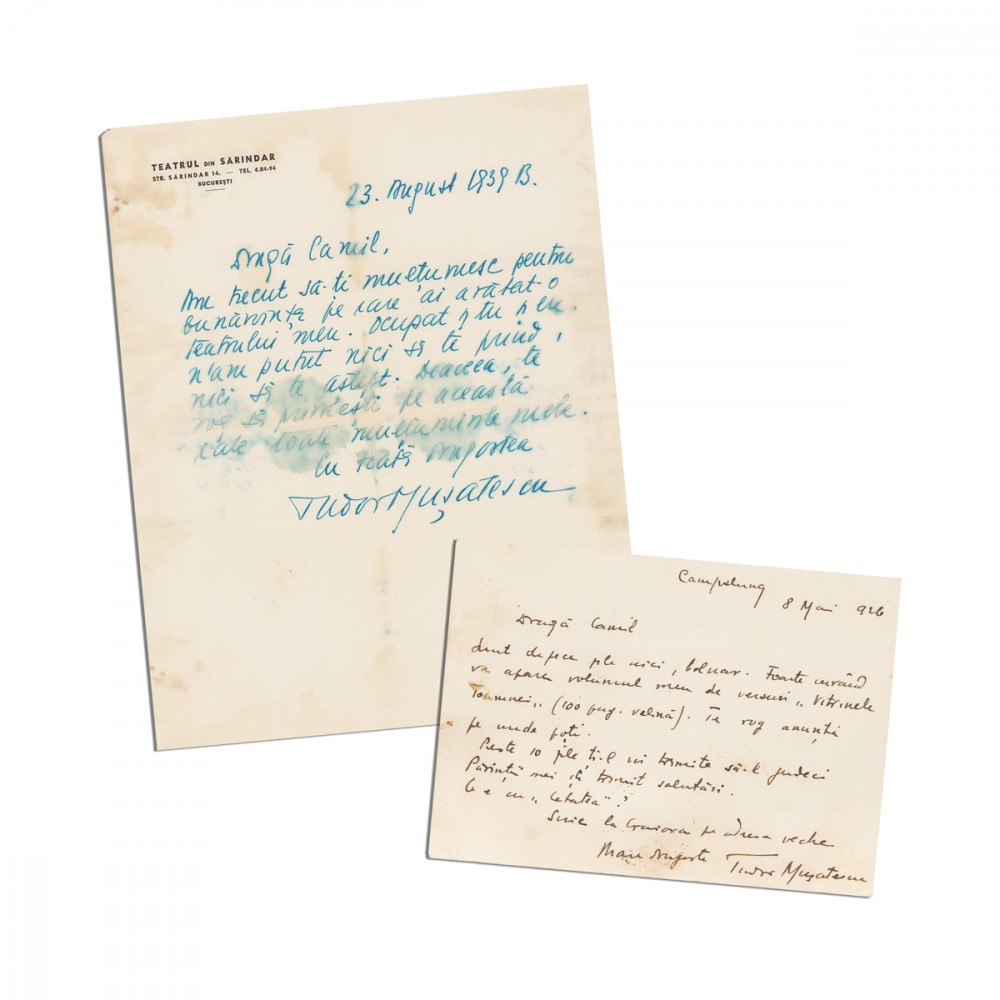 TEATRUL DIN SĂRINDAR
STR. SĂRINDAR 14. — TEL. 4.84-94
BUCUREȘTI
23. August 1939 B.
Dragă Camil,
Am trecut să-ti mulțumesc pentru
bunăvoința pe care ai arătat-o
teatrului meu. Ocupat și tu și eu.
n'am putut nici să te prind,
nici să te aștept. Deaceea, te
rog să primești pe această
cale toate mulțumirile mele.
Cu toată dragostea
Tudor Mușatescu
Campulung
8 Mai 926
Dragă Camil
Sunt de zile aici, bolnav. Foarte curând
va apare volumul meu de versuri „Vitrinele
Toamnei„ (100 pag. velină). Te rog anunță
pe unde poți.
Peste 10 zile ți-l voi trimite să-l judeci
Părinții mei îți trimit salutări.
Ce e cu „Cetatea"?
Scrie la Craiova pe adresa veche
Mare dragoste Tudor Mușatescu